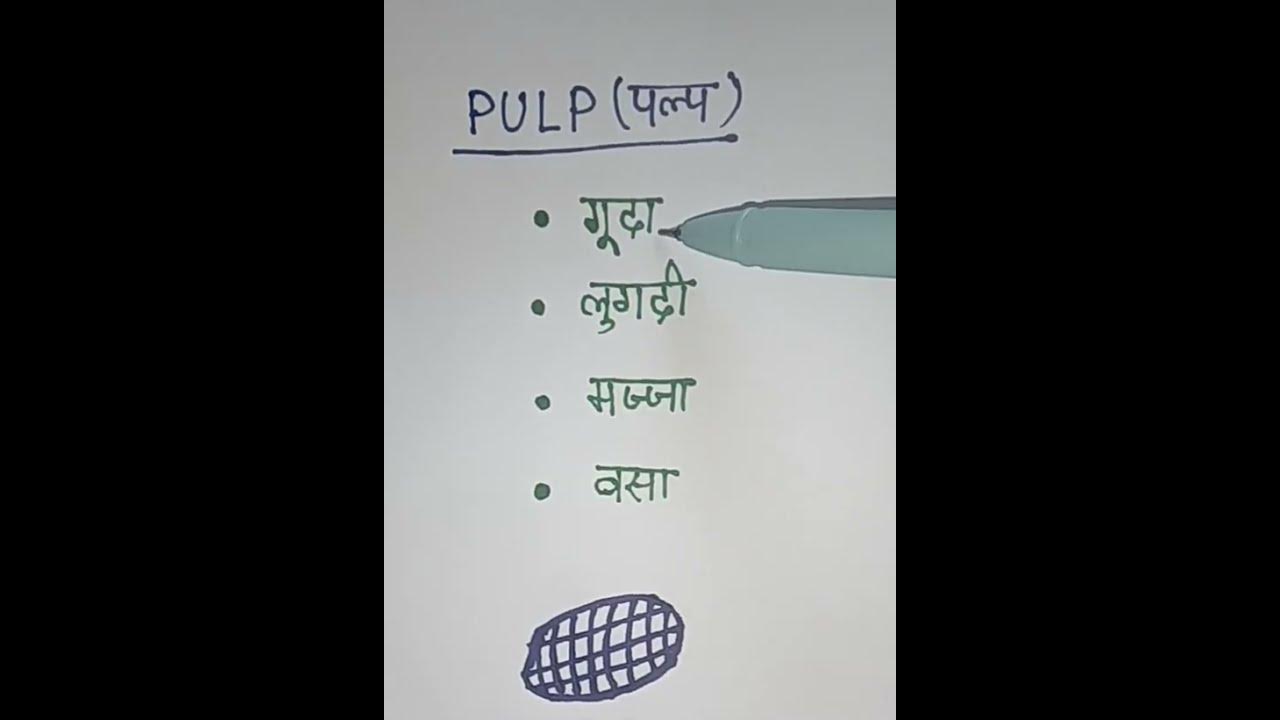 PULP (पल्प)
• गूदा
• लुगदी
• मज्जा
• वसा